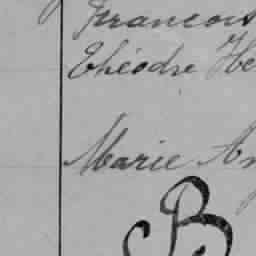 Francois
Théodre He
Marie An
B